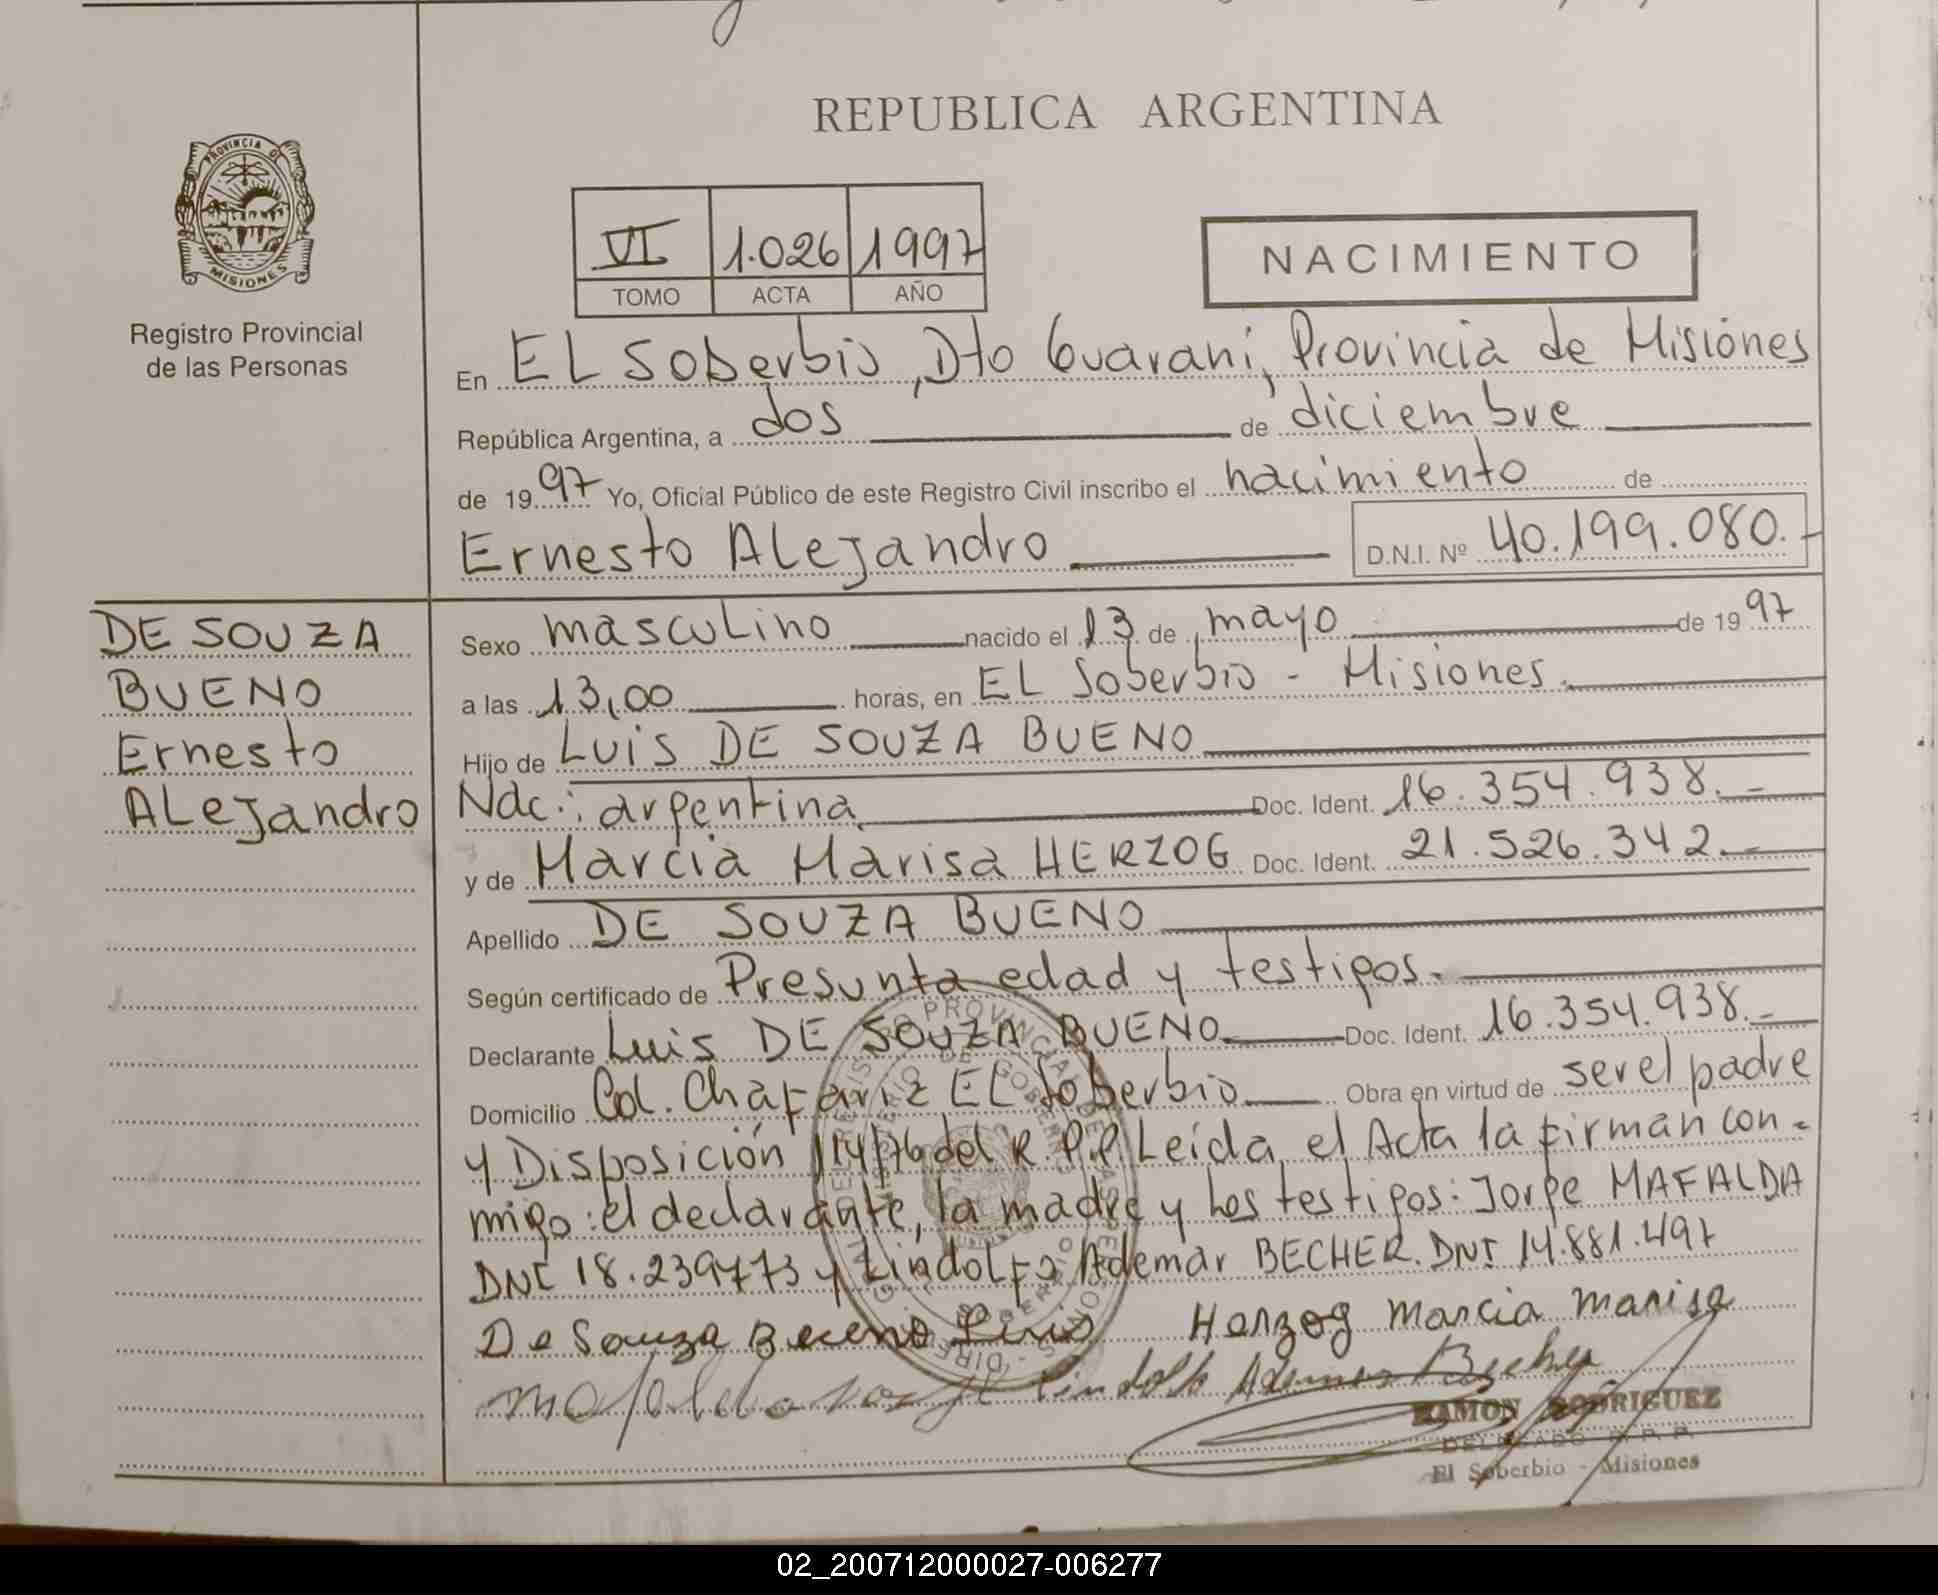 REPUBLICA ARGENTINA
PROVINCIA DE
MISIONES
Registro Provincial
de las Personas
VI 1.026 1997
TOMO ACTA AÑO
NACIMIENTO
En EL Soberbio, Dto Guarani, Provincia de Misiones
República Argentina, a dos de diciembre
de 1997 Yo, Oficial Público de este Registro Civil inscribo el nacimiento de
Ernesto ALejandro D.N.I. Nº 40.199.080.-
DE SOUZA
BUENO
Ernesto
ALejandro
Sexo mascuLino nacido el 13 de mayo de 1997
a las 13,00 horas, en EL Soberbio - Misiones.
Hijo de LUIS DE SOUZA BUENO
Nac.: argentina Doc. Ident. 16.354.938.-
y de Marcia Marisa HERZOG Doc. Ident. 21.526.342.-
Apellido DE SOUZA BUENO
Según certificado de Presunta edad y testigos.
Declarante Luis DE SOUZA BUENO Doc. Ident. 16.354.938.-
Domicilio Col. Chafariz EL Soberbio Obra en virtud de ser el padre
y Disposición 114/76 del R.P.P. Leída el Acta la firman con-
migo: el declarante, la madre y los testigos: Jorge MAFALDA
DNI 18.239773 y Lindolfo Ademar BECHER. DNI 14.881.497
De Souza Bueno Luis Herzog Marcia Marisa
Mafalda Jorge Lindolfo Ademar Becher
RAMON RODRIGUEZ
DELEGADO R. P. P.
El Soberbio - Misiones
02_200712000027-006277